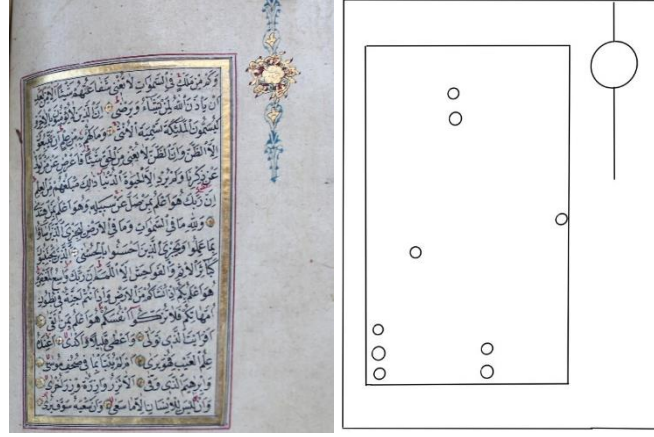 وكم من ملك في السموات لا تغنى شفاعتهم شيئا الا من بعد
ان ياذن الله لمن يشاء ويرضى ان الذين لا يؤمنون بالاخرة
ليسمون الملئكة تسمية الانثى وما لهم به من علم ان يتبعون
الا الظن وان الظن لا يغنى من الحق شيئا فاعرض عن من تولى
عن ذكرنا ولم يرد الا الحيوة الدنيا ذلك مبلغهم من العلم
ان ربك هو اعلم بمن ضل عن سبيله وهو اعلم بمن اهتدى
ولله ما في السموات وما في الارض ليجزى الذين اساؤا
بما عملوا ويجزى الذين احسنوا بالحسنى الذين يجتنبون
كبائر الاثم والفواحش الا اللمم ان ربك واسع المغفرة
هو اعلم بكم اذ انشاكم من الارض واذ انتم اجنة في بطون
امهاتكم فلا تزكوا انفسكم هو اعلم بمن اتقى
افرايت الذى تولى واعطى قليلا واكدى اعنده
علم الغيب فهو يرى ام لم ينبا بما في صحف موسى
وابرهيم الذى وفى الا تزر وازرة وزر اخرى
وان ليس للانسان الا ما سعى وان سعيه سوف يرى